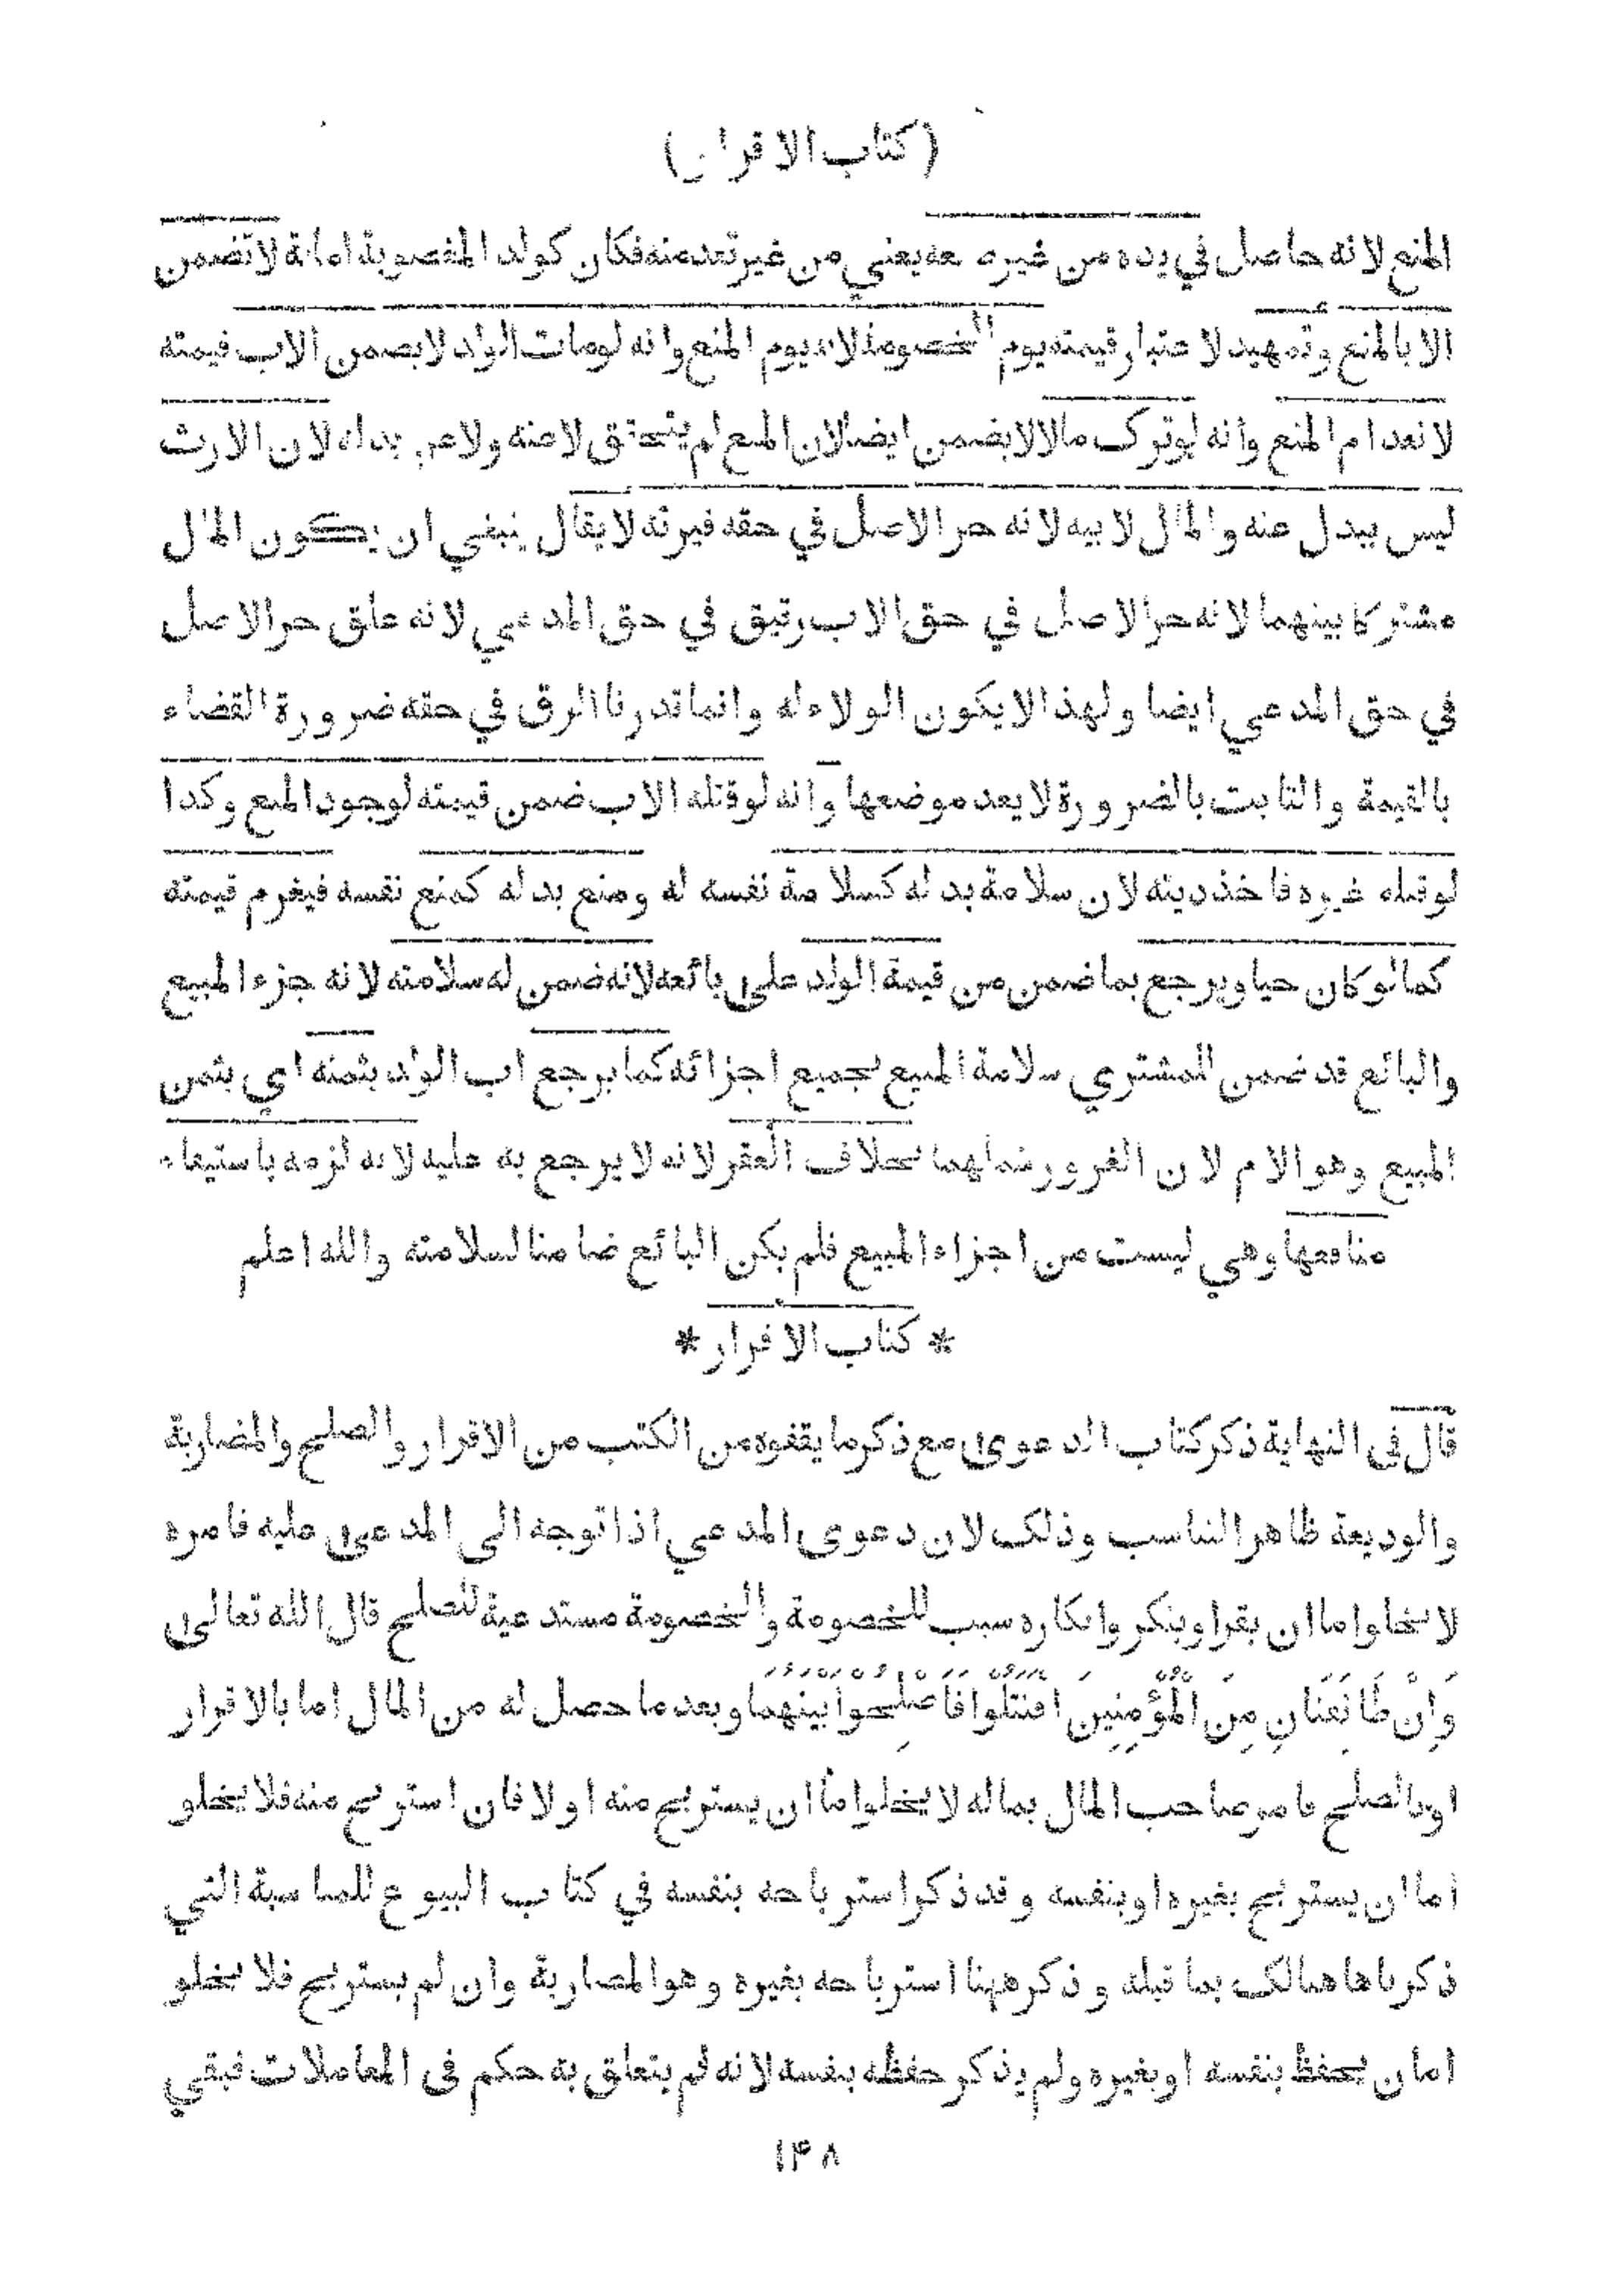 (كتاب الاقرار)
المنع لانه حاصل في يده من غير صنعه يعني من غير تعد منه فكان كولد المغصوبة امانة لا تضمن
الا بالمنع وتمهيد لاعتبار قيمته يوم الخصومة لانه يوم المنع وانه لو مات الولد لا يضمن الاب قيمته
لانعدام المنع وانه لو ترك مالا لا يضمن ايضا لان المنع لم يتحقق لا عنه ولا عن بدله لان الارث
ليس ببدل عنه والمال لابيه لانه حر الاصل في حقه فيرثه لا يقال ينبغي ان يكون المال
مشتركا بينهما لانه حر الاصل في حق الاب رقيق في حق المدعي لانه علق حر الاصل
في حق المدعي ايضا ولهذا لا يكون الولاء له وانما قدرنا الرق في حقه ضرورة القضاء
بالقيمة والثابت بالضرورة لا يعد موضعها وانه لو قتله الاب ضمن قيمته لوجود المنع وكذا
لو قتله غيره فاخذ ديته لان سلامة بدله كسلامة نفسه له ومنع بدله كمنع نفسه فيغرم قيمته
كما لو كان حيا ويرجع بما ضمن من قيمة الولد على بائعه لانه ضمن له سلامته لانه جزء المبيع
والبائع قد ضمن للمشتري سلامة المبيع بجميع اجزائه كما يرجع اب الولد بثمنه اي بثمن
المبيع وهو الام لان الغرور شملهما بخلاف العقر لانه لا يرجع به عليه لانه لزمه باستيفاء
منافعها وهي ليست من اجزاء المبيع فلم يكن البائع ضامنا لسلامته والله اعلم
* كتاب الاقرار *
قال فى النهاية ذكر كتاب الدعوى مع ذكر ما يقفوه من الكتب من الاقرار والصلح والمضاربة
والوديعة ظاهر التناسب وذلك لان دعوى المدعي اذا توجه الى المدعى عليه فامره
لا يخلو اما ان يقر او ينكر وانكاره سبب للخصومة والخصومة مستدعية للصلح قال الله تعالى
وَاِنْ طَائِفَتَانِ مِنَ الْمُؤْمِنِينَ اقْتَتَلُوا فَاَصْلِحُوا بَيْنَهُمَا وبعد ما حصل له من المال اما بالاقرار
او بالصلح فامر صاحب المال بماله لا يخلو اما ان يستربح منه او لا فان استربح منه فلا يخلو
اما ان يستربح بغيره او بنفسه وقد ذكر استرباحه بنفسه في كتاب البيوع للمناسبة التي
ذكرناها هنالك بما قبله و ذكر ههنا استرباحه بغيره وهو المضاربة وان لم يستربح فلا يخلو
اما ان يحفظ بنفسه او بغيره ولم يذكر حفظه بنفسه لانه لم يتعلق به حكم فى المعاملات فبقي
۱۴۸